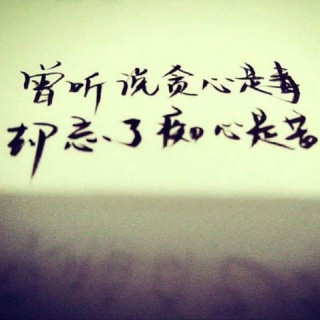 曾听说贪心是毒
却忘了痴心是苦